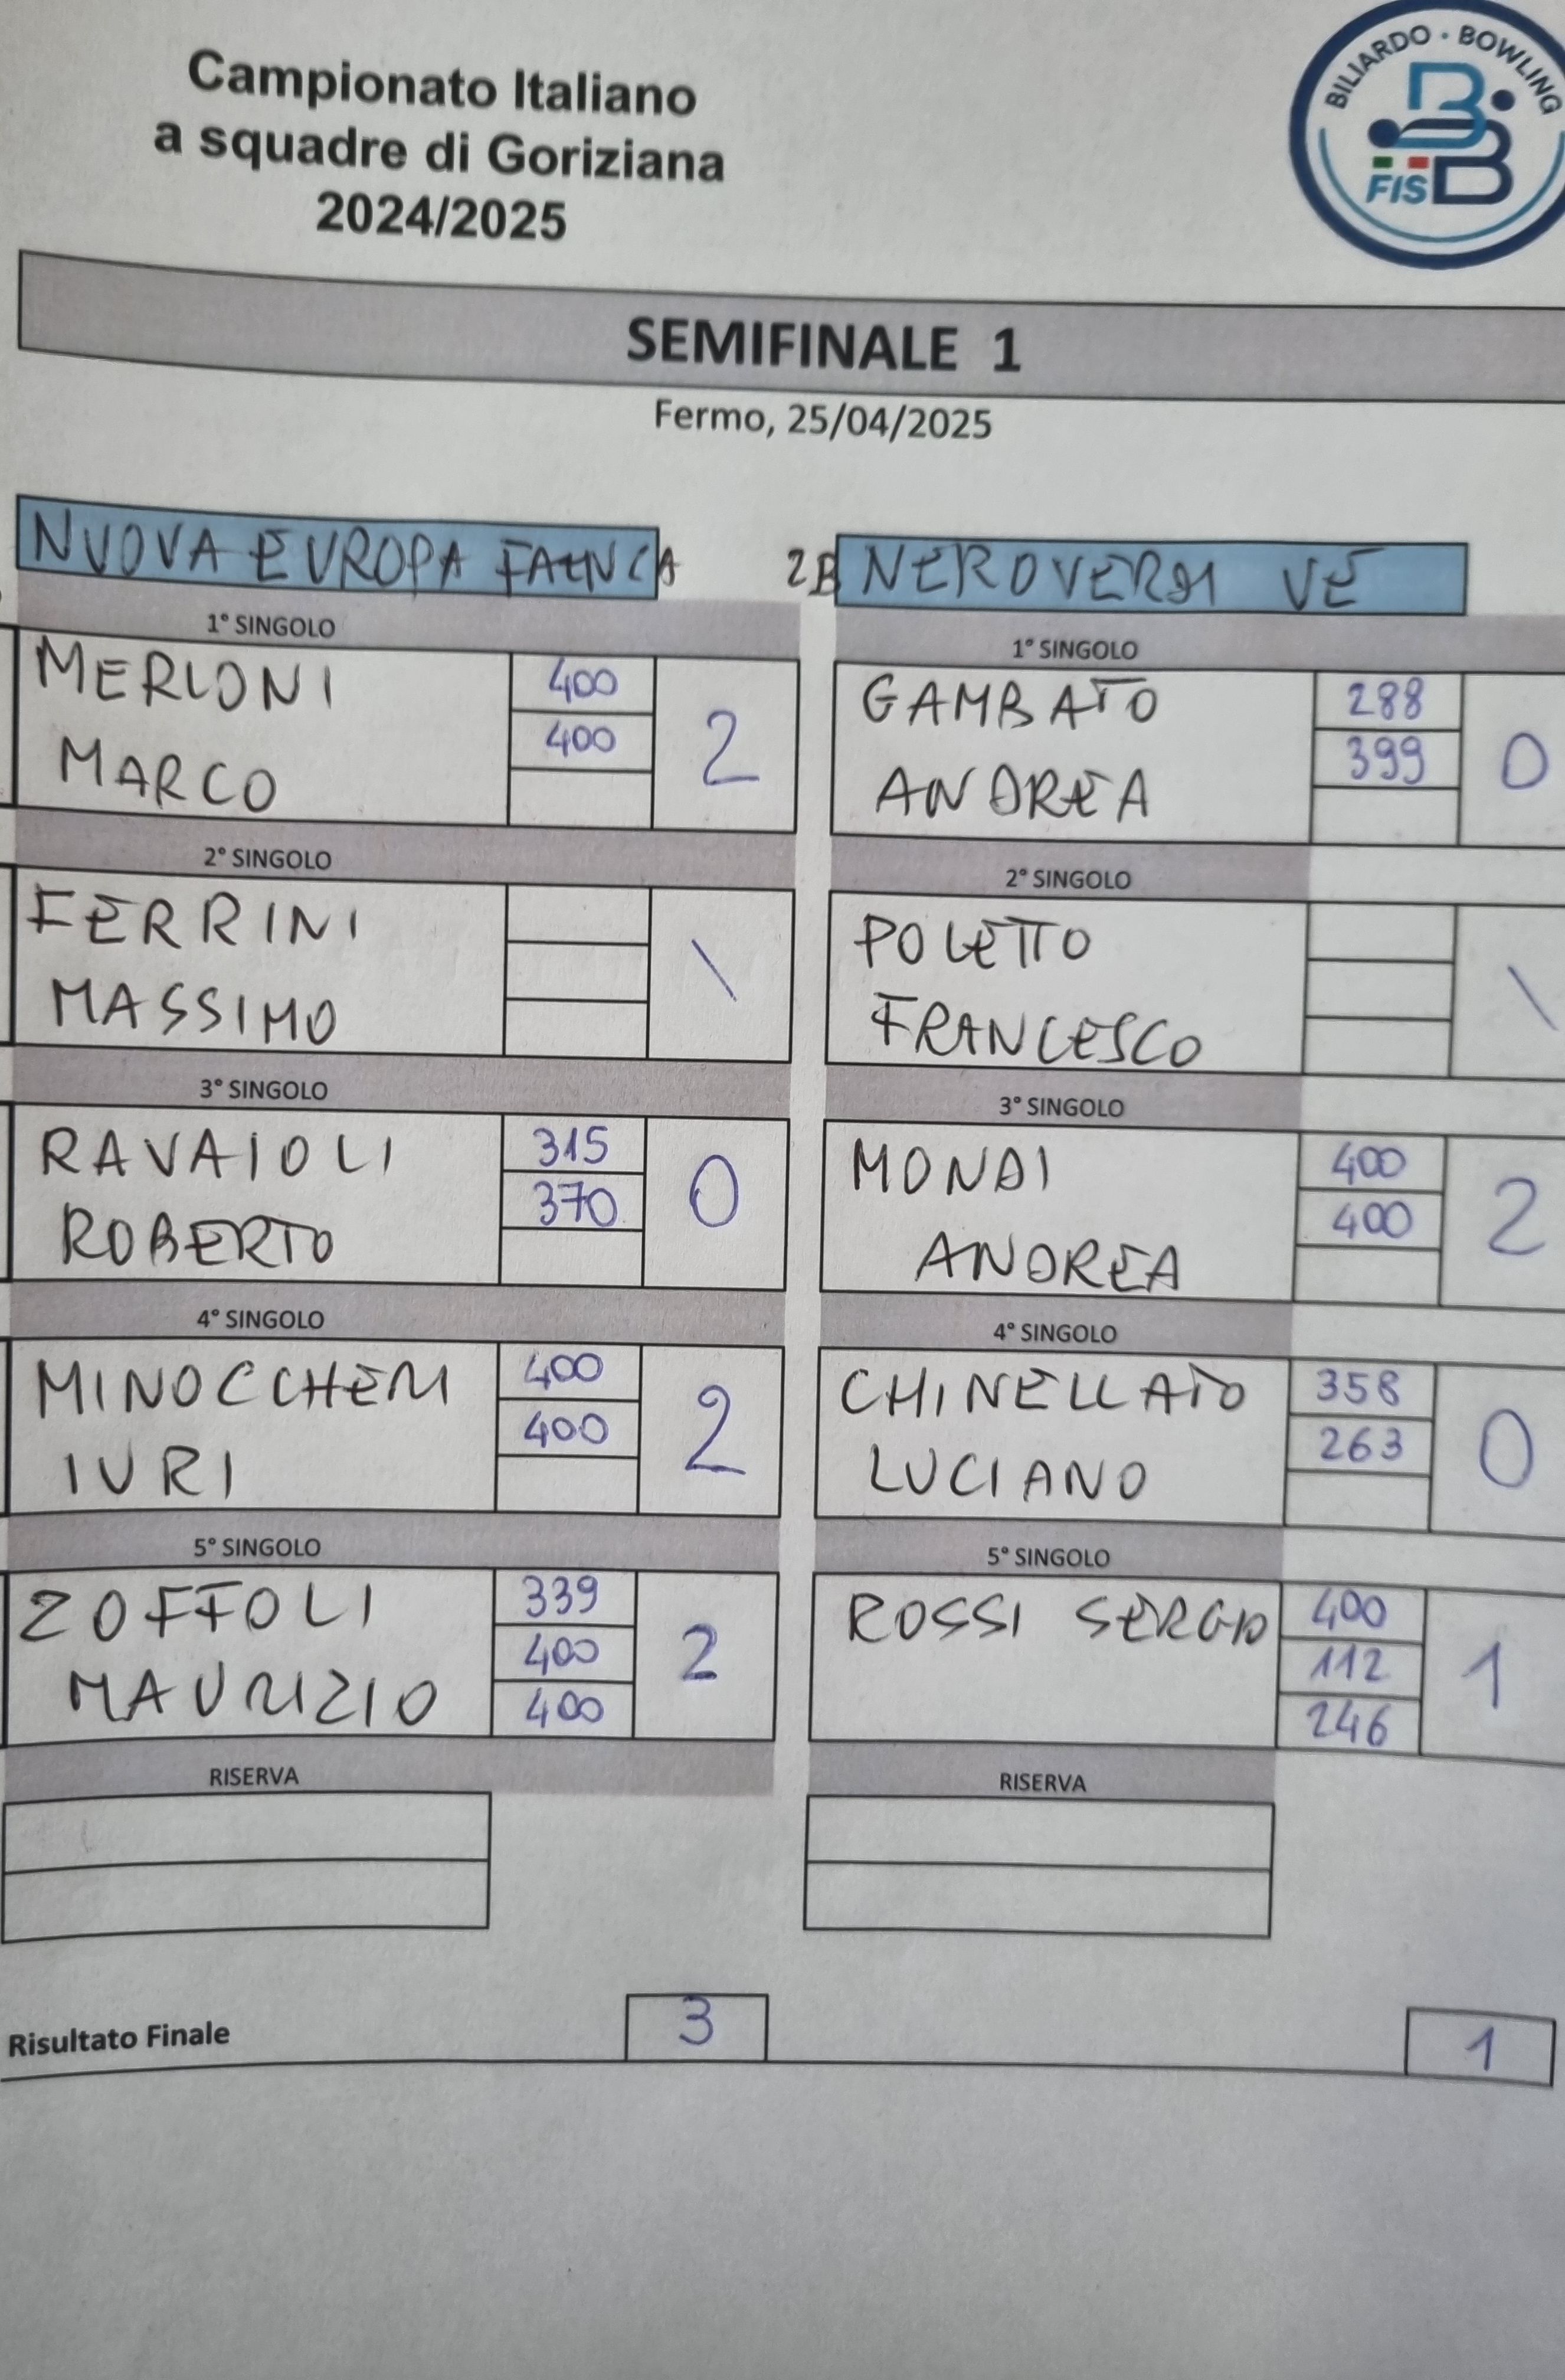 Campionato Italiano
a squadre di Goriziana
2024/2025
BILIARDO · BOWLING
FISBB
SEMIFINALE 1
Fermo, 25/04/2025
NUOVA EUROPA FAENZA
1° SINGOLO
MERLONI
MARCO
400
400
2
2° SINGOLO
FERRINI
MASSIMO
\
3° SINGOLO
RAVAIOLI
ROBERTO
315
370
0
4° SINGOLO
MINOCCHERI
IURI
400
400
2
5° SINGOLO
ZOFFOLI
MAURIZIO
339
400
400
2
RISERVA
2B NEROVERDI VE
1° SINGOLO
GAMBATO
ANDREA
288
399
0
2° SINGOLO
POLETTO
FRANCESCO
\
3° SINGOLO
MONDI
ANDREA
400
400
2
4° SINGOLO
CHINELLATO
LUCIANO
358
263
0
5° SINGOLO
ROSSI SERGIO
400
112
246
1
RISERVA
Risultato Finale 3 1